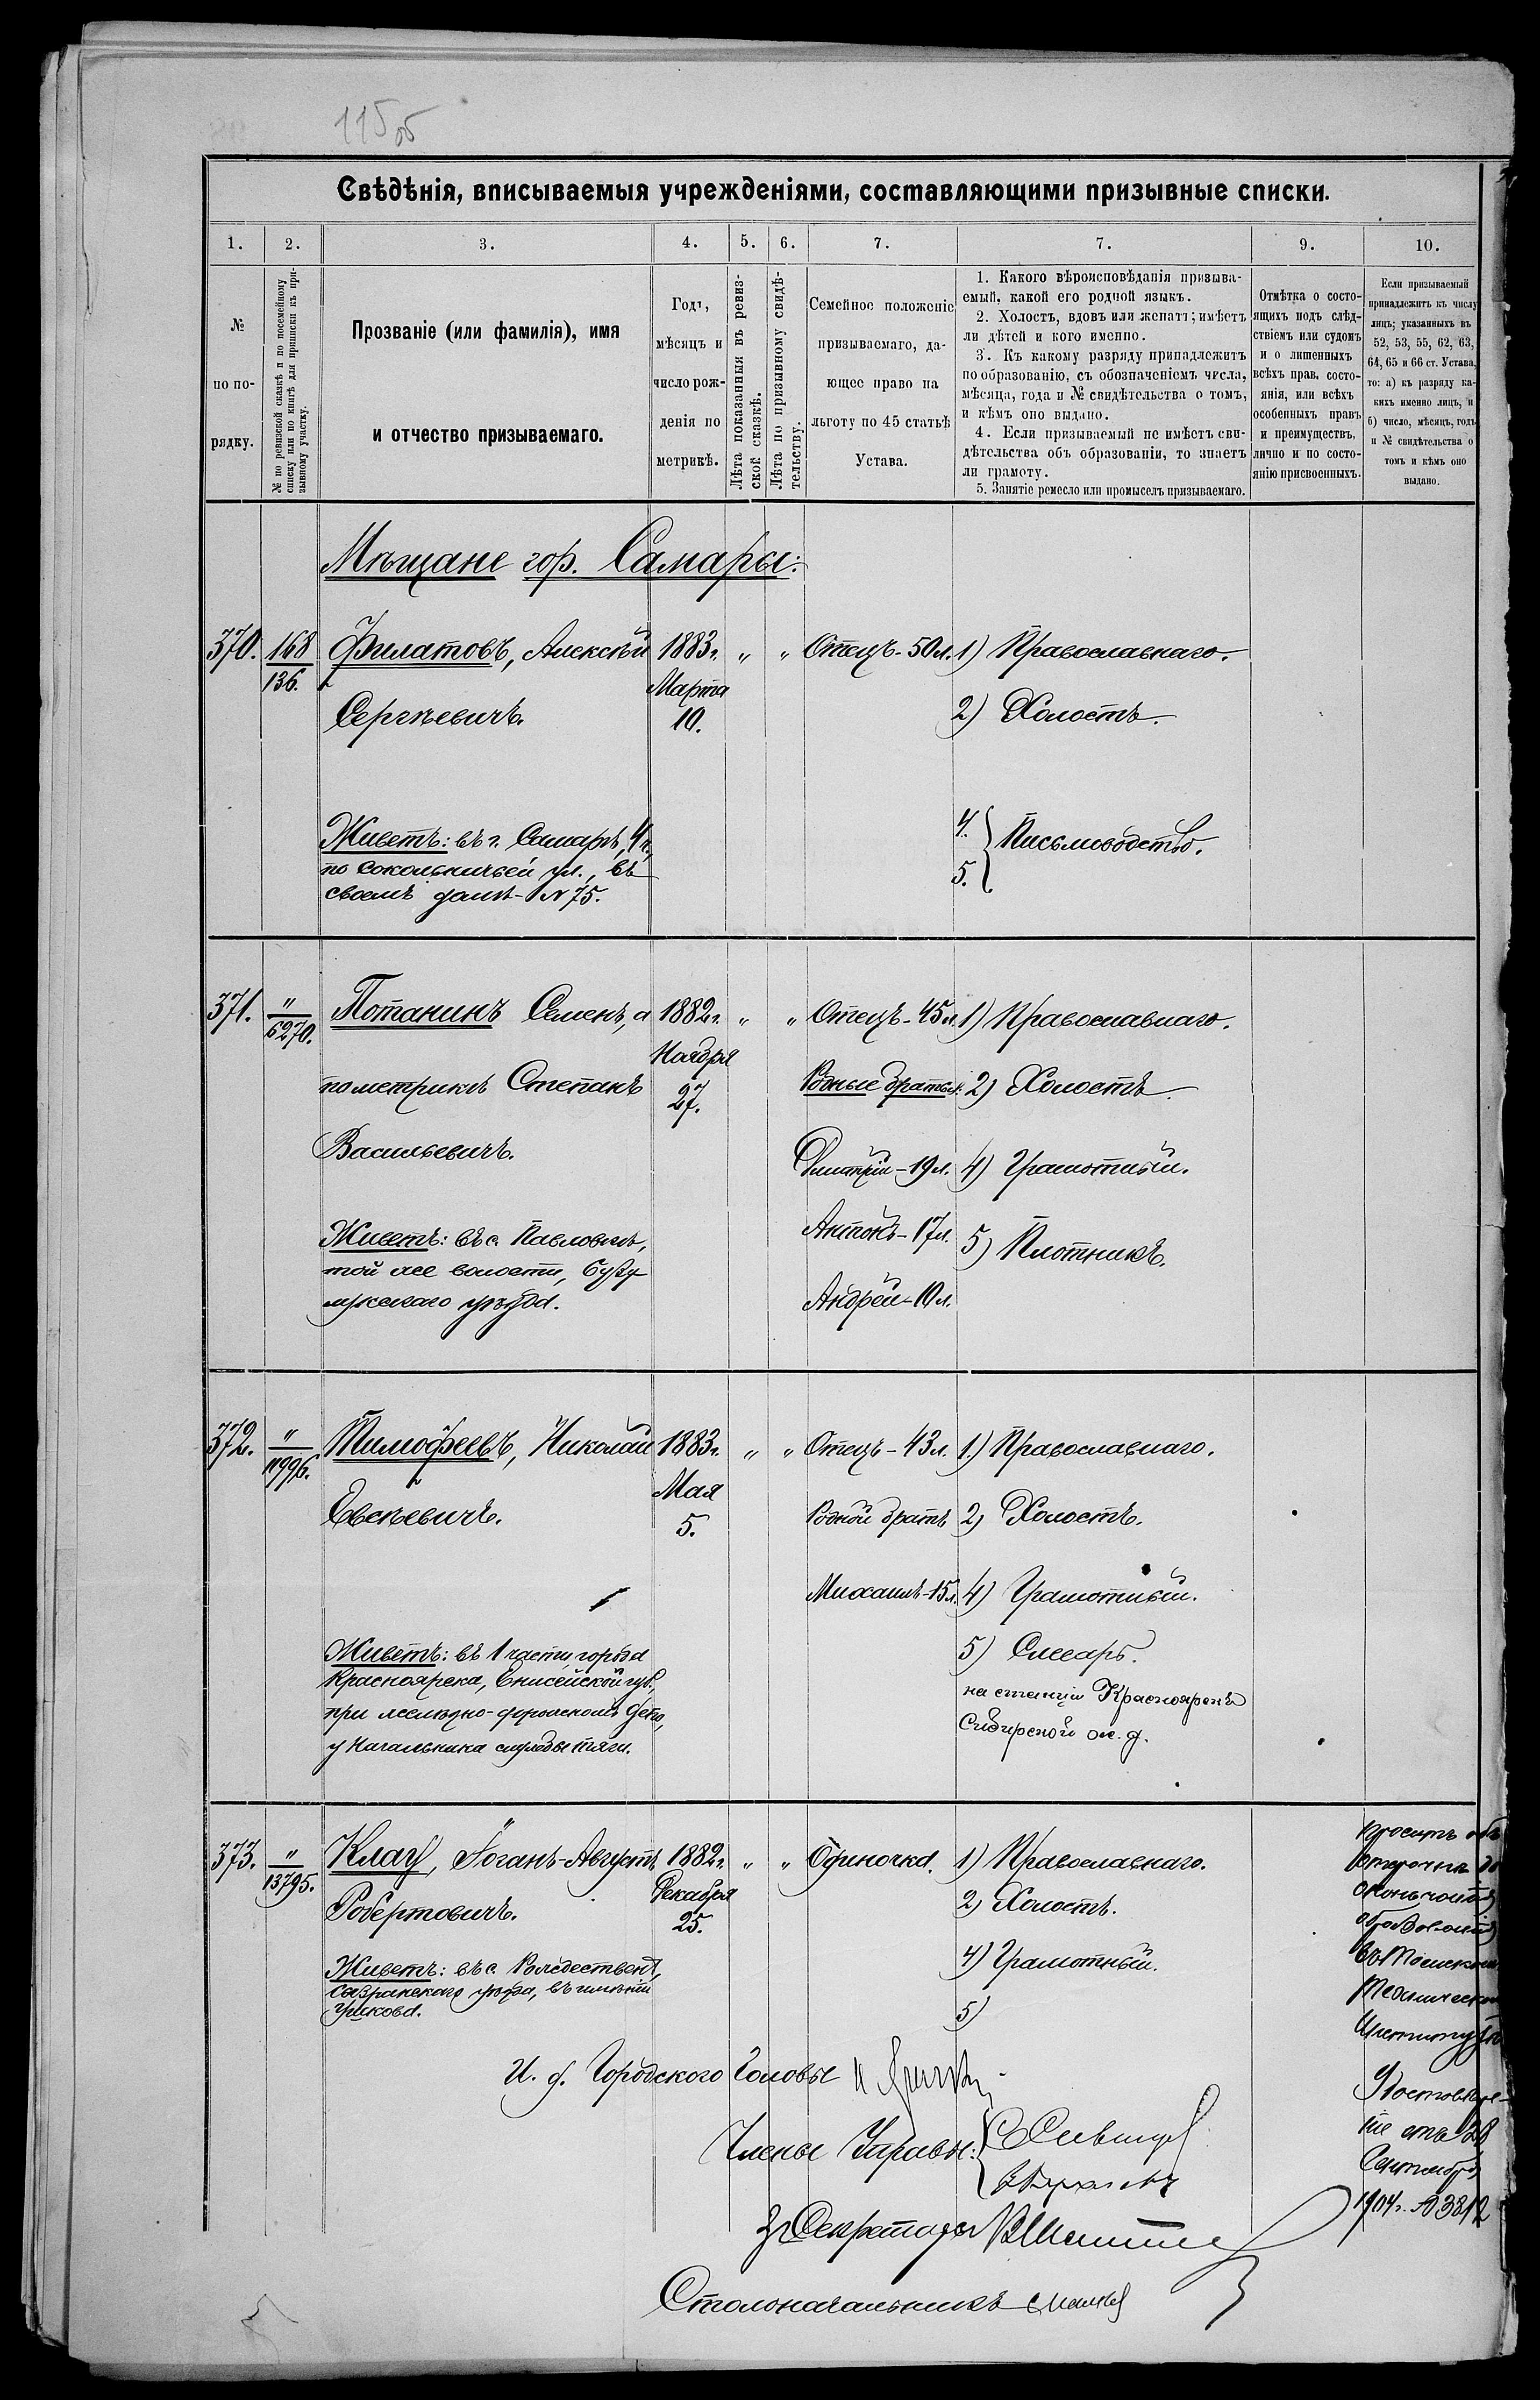 115 об
Свѣдѣнія, вписываемыя учрежденіями, составляющими призывные списки.
1. 2. 3. 4. 5. 6. 7. 7. 9. 10.
№
по по-
рядку.
№ по ревизской сказкѣ и по посемейному
списку или по книгѣ для приписки къ при-
зывному участку.
Прозваніе (или фамилія), имя
и отчество призываемаго.
Годъ,
мѣсяцъ и
число рож-
денія по
метрикѣ.
Лѣта показанныя въ ревиз-
ской сказкѣ.
Лѣта по призывному свидѣ-
тельству.
Семейное положеніе
призываемаго, да-
ющее право на
льготу по 45 статьѣ
Устава.
1. Какого вѣроисповѣданія призыва-
емый, какой его родной языкъ.
2. Холостъ, вдовъ или женатъ; имѣетъ
ли дѣтей и кого именно.
3. Къ какому разряду принадлежитъ
по образованію, съ обозначеніемъ числа,
мѣсяца, года и № свидѣтельства о томъ,
и кѣмъ оно выдано.
4. Если призываемый не имѣетъ сви-
дѣтельства объ образованіи, то знаетъ
ли грамоту.
5. Занятіе ремесло или промыселъ призываемаго.
Отмѣтка о состо-
ящихъ подъ слѣд-
ствіемъ или судомъ
и о лишенныхъ
всѣхъ прав, состо-
янія, или всѣхъ
особенныхъ правъ
и преимуществъ,
лично и по состо-
янію присвоенныхъ.
Если призываемый
принадлежитъ къ числу
лицъ; указанныхъ въ
52, 53, 55, 62, 63,
64, 65 и 66 ст. Устава,
то: а) къ разряду ка-
кихъ именно лицъ, и
б) число, мѣсяцъ, годъ
и № свидѣтельства о
томъ и кѣмъ оно
выдано.
Мѣщане гор. Самары:
370. 168 Филатовъ, Алексѣй 1883г. " " Отецъ-50л. 1) Православнаго.
136. Марта
Сергѣевичъ. 10. 2) Холостъ.
Живетъ: въ г. Самарѣ, 4 ч.,
по Сокольничьей ул., въ
своемъ домѣ-№75.
4.
5. Письмоводство.
371. " Потанинъ Семенъ, а 1882г. " " Отецъ-45л. 1) Православнаго.
6270. Ноября
по метрикѣ Степанъ 27. Родные братья: 2) Холостъ.
Васильевичъ. Дмитрій-19л. 4) Грамотный.
Живетъ: въ с. Павловкѣ,
той же волости, Бузу
лукскаго уѣзда.
Антонъ-17л. 5) Плотникъ.
Андрей-10л.
372. " Тимофеевъ, Николай 1883г. " " Отецъ-43л. 1.) Православнаго.
11996. Мая
Евсѣевичъ. 5. Родной братъ 2) Холостъ.
Михаилъ-15л. 4) Грамотный.
Живетъ: въ 1 части города
Красноярска, Енисейской губ.,
при желѣзно-дорожномъ депо,
у Начальника службы тяги.
5) Слесарь.
на станціи Красноярскъ
Сибирской ж. д.
373. " Клау, Іоганъ-Августъ 1882г. " " Одиночка. 1) Православнаго.
13795. Декабря
Робертовичъ. 25. 2) Холостъ.
Живетъ: въ с. Рождествено,
Сызранскаго уѣзда, въ имѣніи
Ушкова.
4) Грамотный.
5)
проситъ объ
отсрочкѣ до
окончанія
образованія
въ Томскомъ
Техническомъ
Институтѣ
Удостовѣре-
ніе отъ 28
Сентября
1904г. № 3812
И. д. Городского Головы
Члены Управы:
За Секретаря
Столоначальникъ